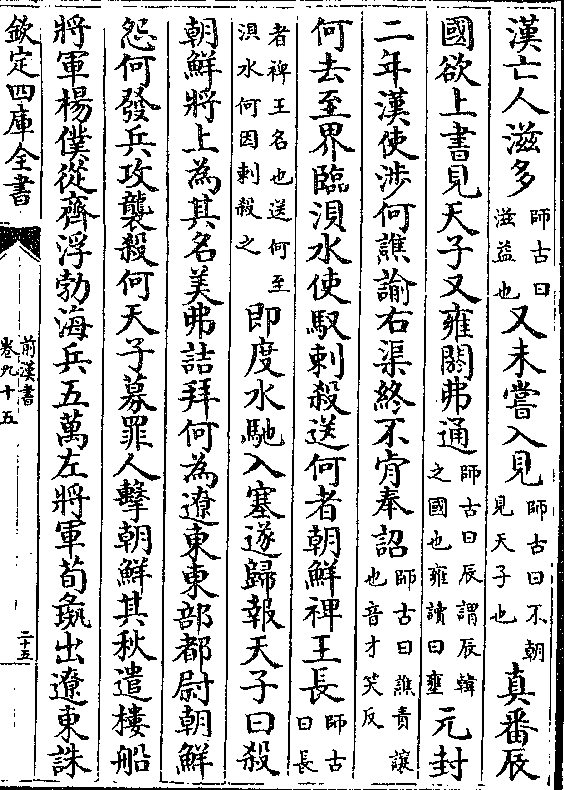 漢亡人滋多師古曰滋益也又未嘗入見師古曰不朝見天子也真番辰
國欲上書見天子又雍閼弗通師古曰辰謂辰韓之國也雍讀曰壅元封
二年漢使涉何譙諭右渠終不肯奉詔師古曰譙責讓也音才笑反
何去至界臨浿水使馭刺殺送何者朝鮮裨王長師古曰長
者裨王名也送何至浿水何因刺殺之即度水馳入塞遂歸報天子曰殺
朝鮮將上為其名美弗詰拜何為遼東東部都尉朝鮮
怨何發兵攻襲殺何天子募罪人擊朝鮮其秋遣樓船
將軍楊僕從齊浮勃海兵五萬左將軍荀彘出遼東誅
欽定四庫全書
前漢書
卷九十五
二十五